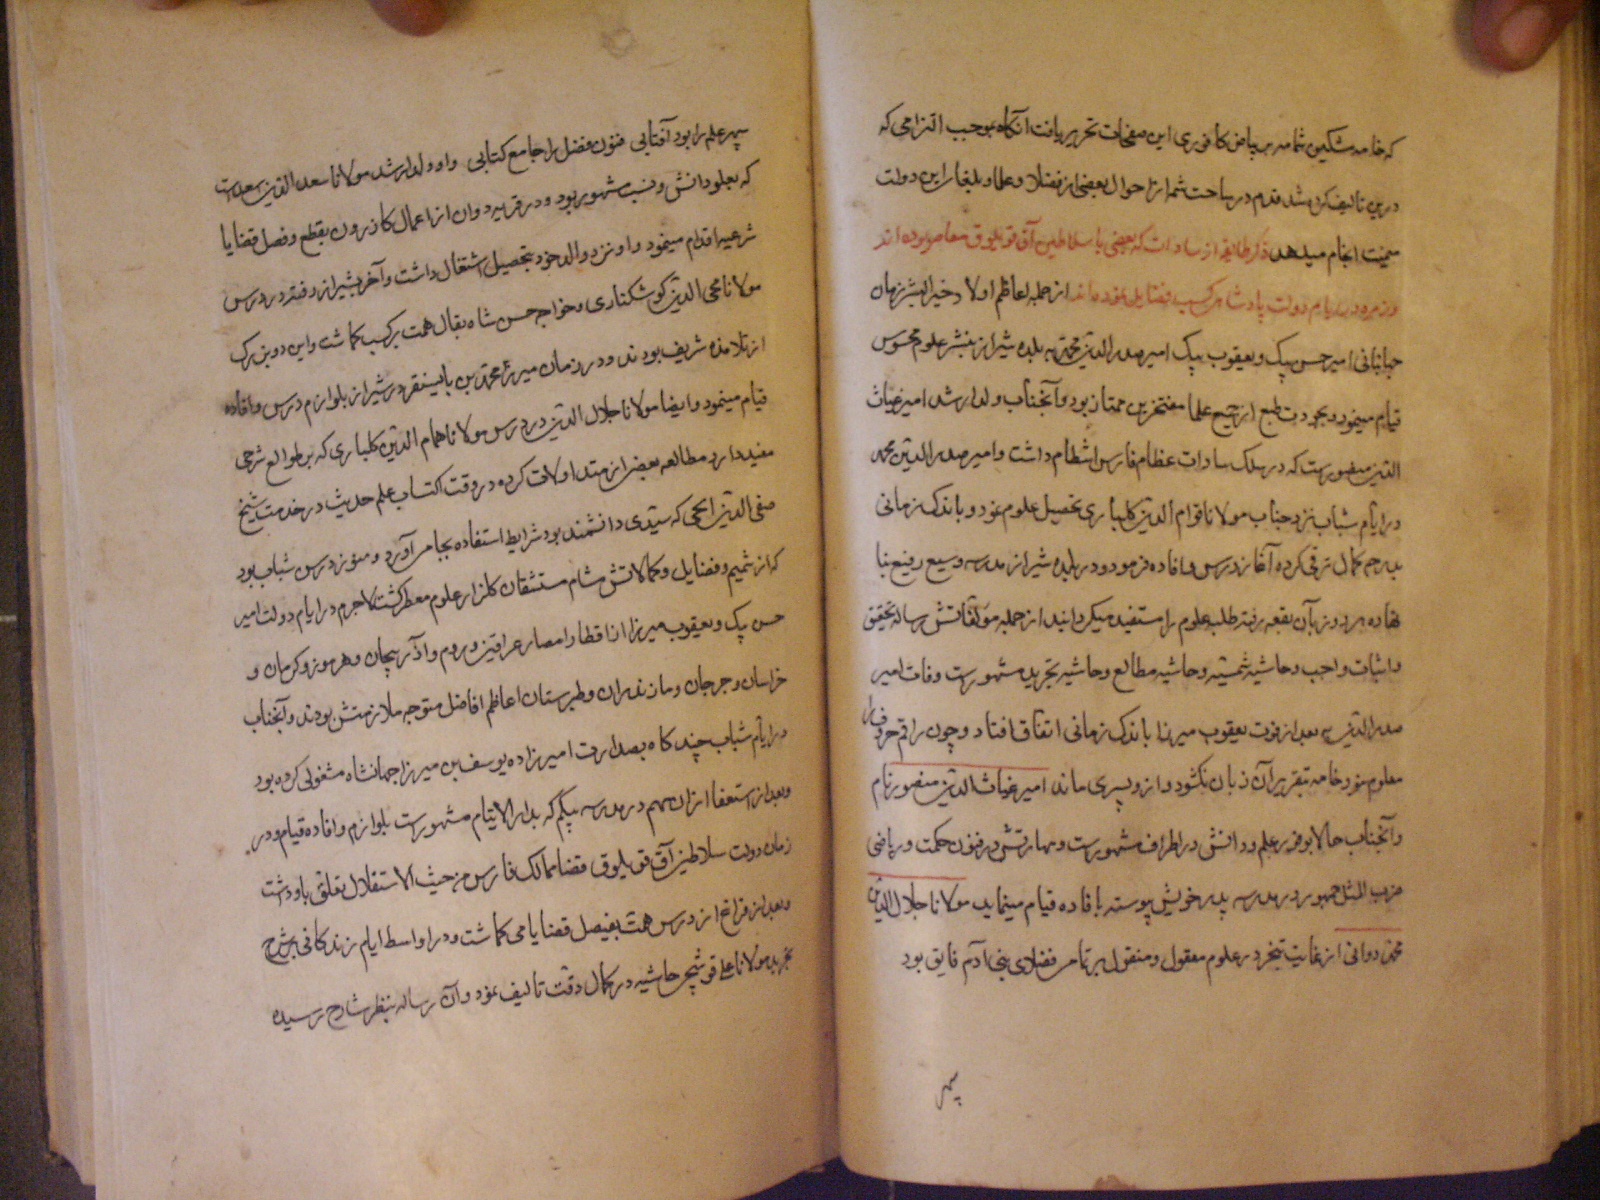 که خامه مشکین شمامه بر بیاض کافوری این صفحات تحریر یافت آنگاه بموجب التزامی که
درین تالیف کرده شد قدم در ساحت شمه از احوال بعضی از فضلا و علما و بلغاء این دولت
سمت انجام میدهد ذکر طایفه از سادات که بعضی با سلاطین آق قویلوق معاصر بوده اند
دولت پادشاه کسب فضایل نموده اند از جمله اعاظم اولاد خیر البشر زمان
جهانبانی امیر حسن بیک و یعقوب بیک امیر صدر الدین محمد به بلده شیراز بنشر علوم محسوس
قیام مینمود و بجودت طبع از جمیع علما مفتخرین ممتاز بود و آنجناب ولد ارشد امیر غیاث
الدین منصورست که در سلک سادات عظام فارس انتظام داشت و امیر صدر الدین محمد
در ایام شباب نزد جناب مولانا قوام الدین کلباری تحصیل علوم نمود و باندک زمانی
بدرجه کمال ترقی کرده آغاز درس و افاده فرمود و در بلده شیراز مدرسه وسیع رفیع بنا
نهاده هر روز بآن بقعه رفته طلبه علوم را مستفید میگردانید از جمله مؤلفاتش رساله تحقیق
و اثبات واجب و حاشیه شمسیه و حاشیه مطالع و حاشیه تجرید مشهورست وفات امیر
صدر الدین محمد بعد از فوت یعقوب میرزا باندک زمانی اتفاق افتاد و چون راقم حروف را
معلوم نبود خامه بتقریر آن زبان نکشود و از و پسری ماند امیر غیاث الدین منصور نام
و آنجناب حالا بوفور علم و دانش در اطراف مشهورست و مهارتش در فنون حکمت و ریاضی
ضرب المثل جمهور در مدرسه پدر خویش پیوسته بافاده قیام مینماید مولانا جلال الدین
محمد دوانی از غایت تبحر در علوم معقول و منقول بر تمام فضلای بنی آدم فایق بود
سپهر
سپهر علم را بود آفتابی فنون فضل را جامع کتابی و او ولد ارشد مولانا سعد الدین اسعدست
که بعلو دانش و نسب مشهور بود و در قریه دوان از اعمال کازرون بقطع و فصل قضایا
شرعیه اقدام مینمود و او نزد والد خود بتحصیل اشتغال داشت و آخر بشیراز رفته در درس
مولانا محی الدین کوشکناری و خواجه حسن شاه بقال همت بر کسب کماشت و این دو بزرک
از تلامذه شریف بودند و در زمان میرزا محمد بن بایسنقر در شیراز بلوازم درس و افاده
قیام مینمود و ایضا مولانا جلال الدین در درس مولانا همام الدین کلباری که بر طوالع شرحی
مفید دارد مطالعه بعضی از متداولات کرده در وقت اکتساب علم حدیث در خدمت شیخ
صفی الدین ایجی که سیدی دانشمند بود شرایط استفاده بجا می آورد و هنوز در سن شباب بود
که از شمیم فضایل و کمالاتش مشام مستنشقان کلزار علوم معطر کشت لاجرم در ایام دولت امیر
حسن بیک و یعقوب میرزا از اقطار و امصار عراقین و روم و آذربیجان و هرموز و کرمان و
خراسان و جرجان و مازندران و طبرستان اعاظم افاضل متوجه ملازمتش بودند و آنجناب
در ایام شباب چند کاه بصدارت امیرزاده یوسف بن میرزا جهانشاه مشغولی کرده بود
و بعد از استعفا از ان مهم در مدرسه بیکم که بدار الایتام مشهورست بلوازم و افاده قیام و در
زمان دولت سلاطین آق قویلوق قضا ممالک فارس من حیث الاستقلال تعلق باو داشت
و بعد از فراغ از درس همت بفیصل قضایا می کماشت و در اواسط ایام زندکانی بر شرح
تجرید مولانا علی قوشجی حاشیه در کمال دقت تالیف نمود و آن رساله بنظر شارح رسیده